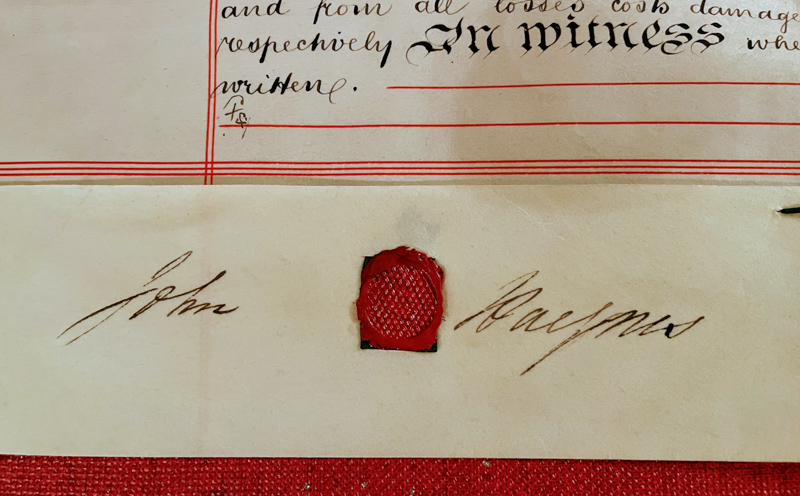 and from all losses costs damage
respectively In witness whe
written.
John Haegnes